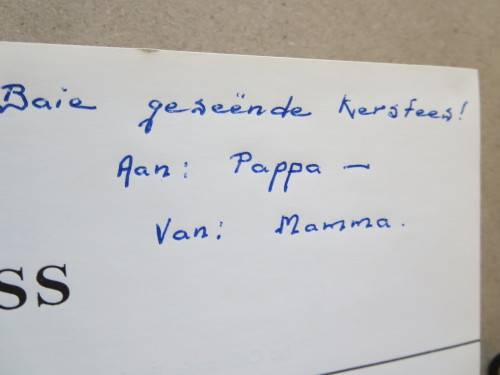 Baie geseënde Kersfees!
Aan: Pappa —
Van: Mamma.
ss